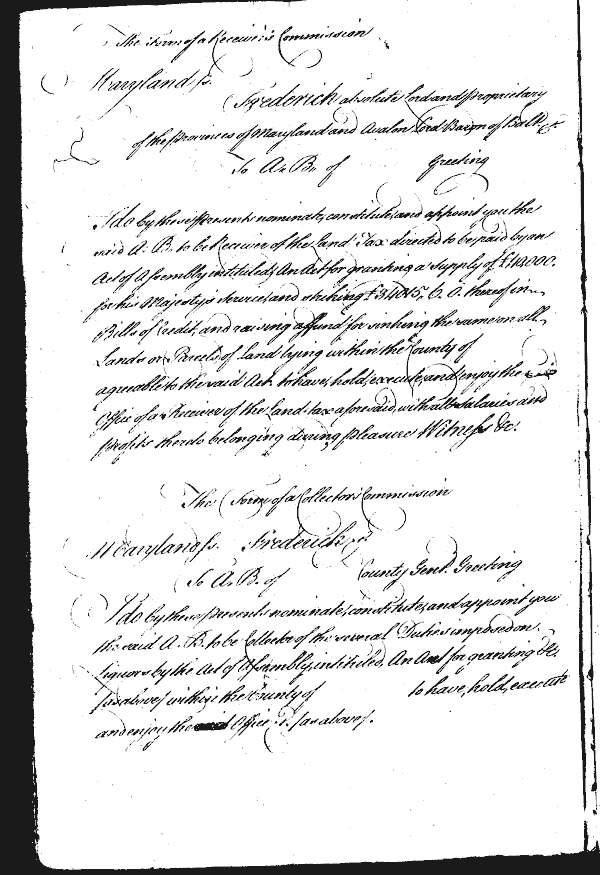 The Form of a Receiver's Commission
Maryland ss.
Frederick absolute Lord and proprietary
of the Provinces of Maryland and Avalon Lord Baron of Balt. &c.
To A. B. of Greeting
I do by these presents nominate, constitute, and appoint you the
said A. B. to be Receiver of the Land Tax directed to be paid by an
Act of Assembly intituled, An Act for granting a Supply of £40000.
for his Majesty's Service, and striking £34015, 6. 0. thereof in
Bills of Credit, and raising a ffund for sinking the same on all
Lands or Parcels of Land lying within the County of
agreable to the said Act. to have, hold, execute, and enjoy the
Office of a Receiver of the Land tax aforesaid, with all Salaries and
profits thereto belonging during pleasure Witness &c.
The Form of a Collector's Commission
Maryland ss. Frederick &c.
To A. B. of County Gent. Greeting
I do by these presents nominate, constitute, and appoint you
the said A. B. to be Collector of the several Duties imposed on
Liquors by the Act of Assembly, intituled, An Act for granting &c.
(as above) within the County of to have, hold, execute
and enjoy the said Office &c. (as above).